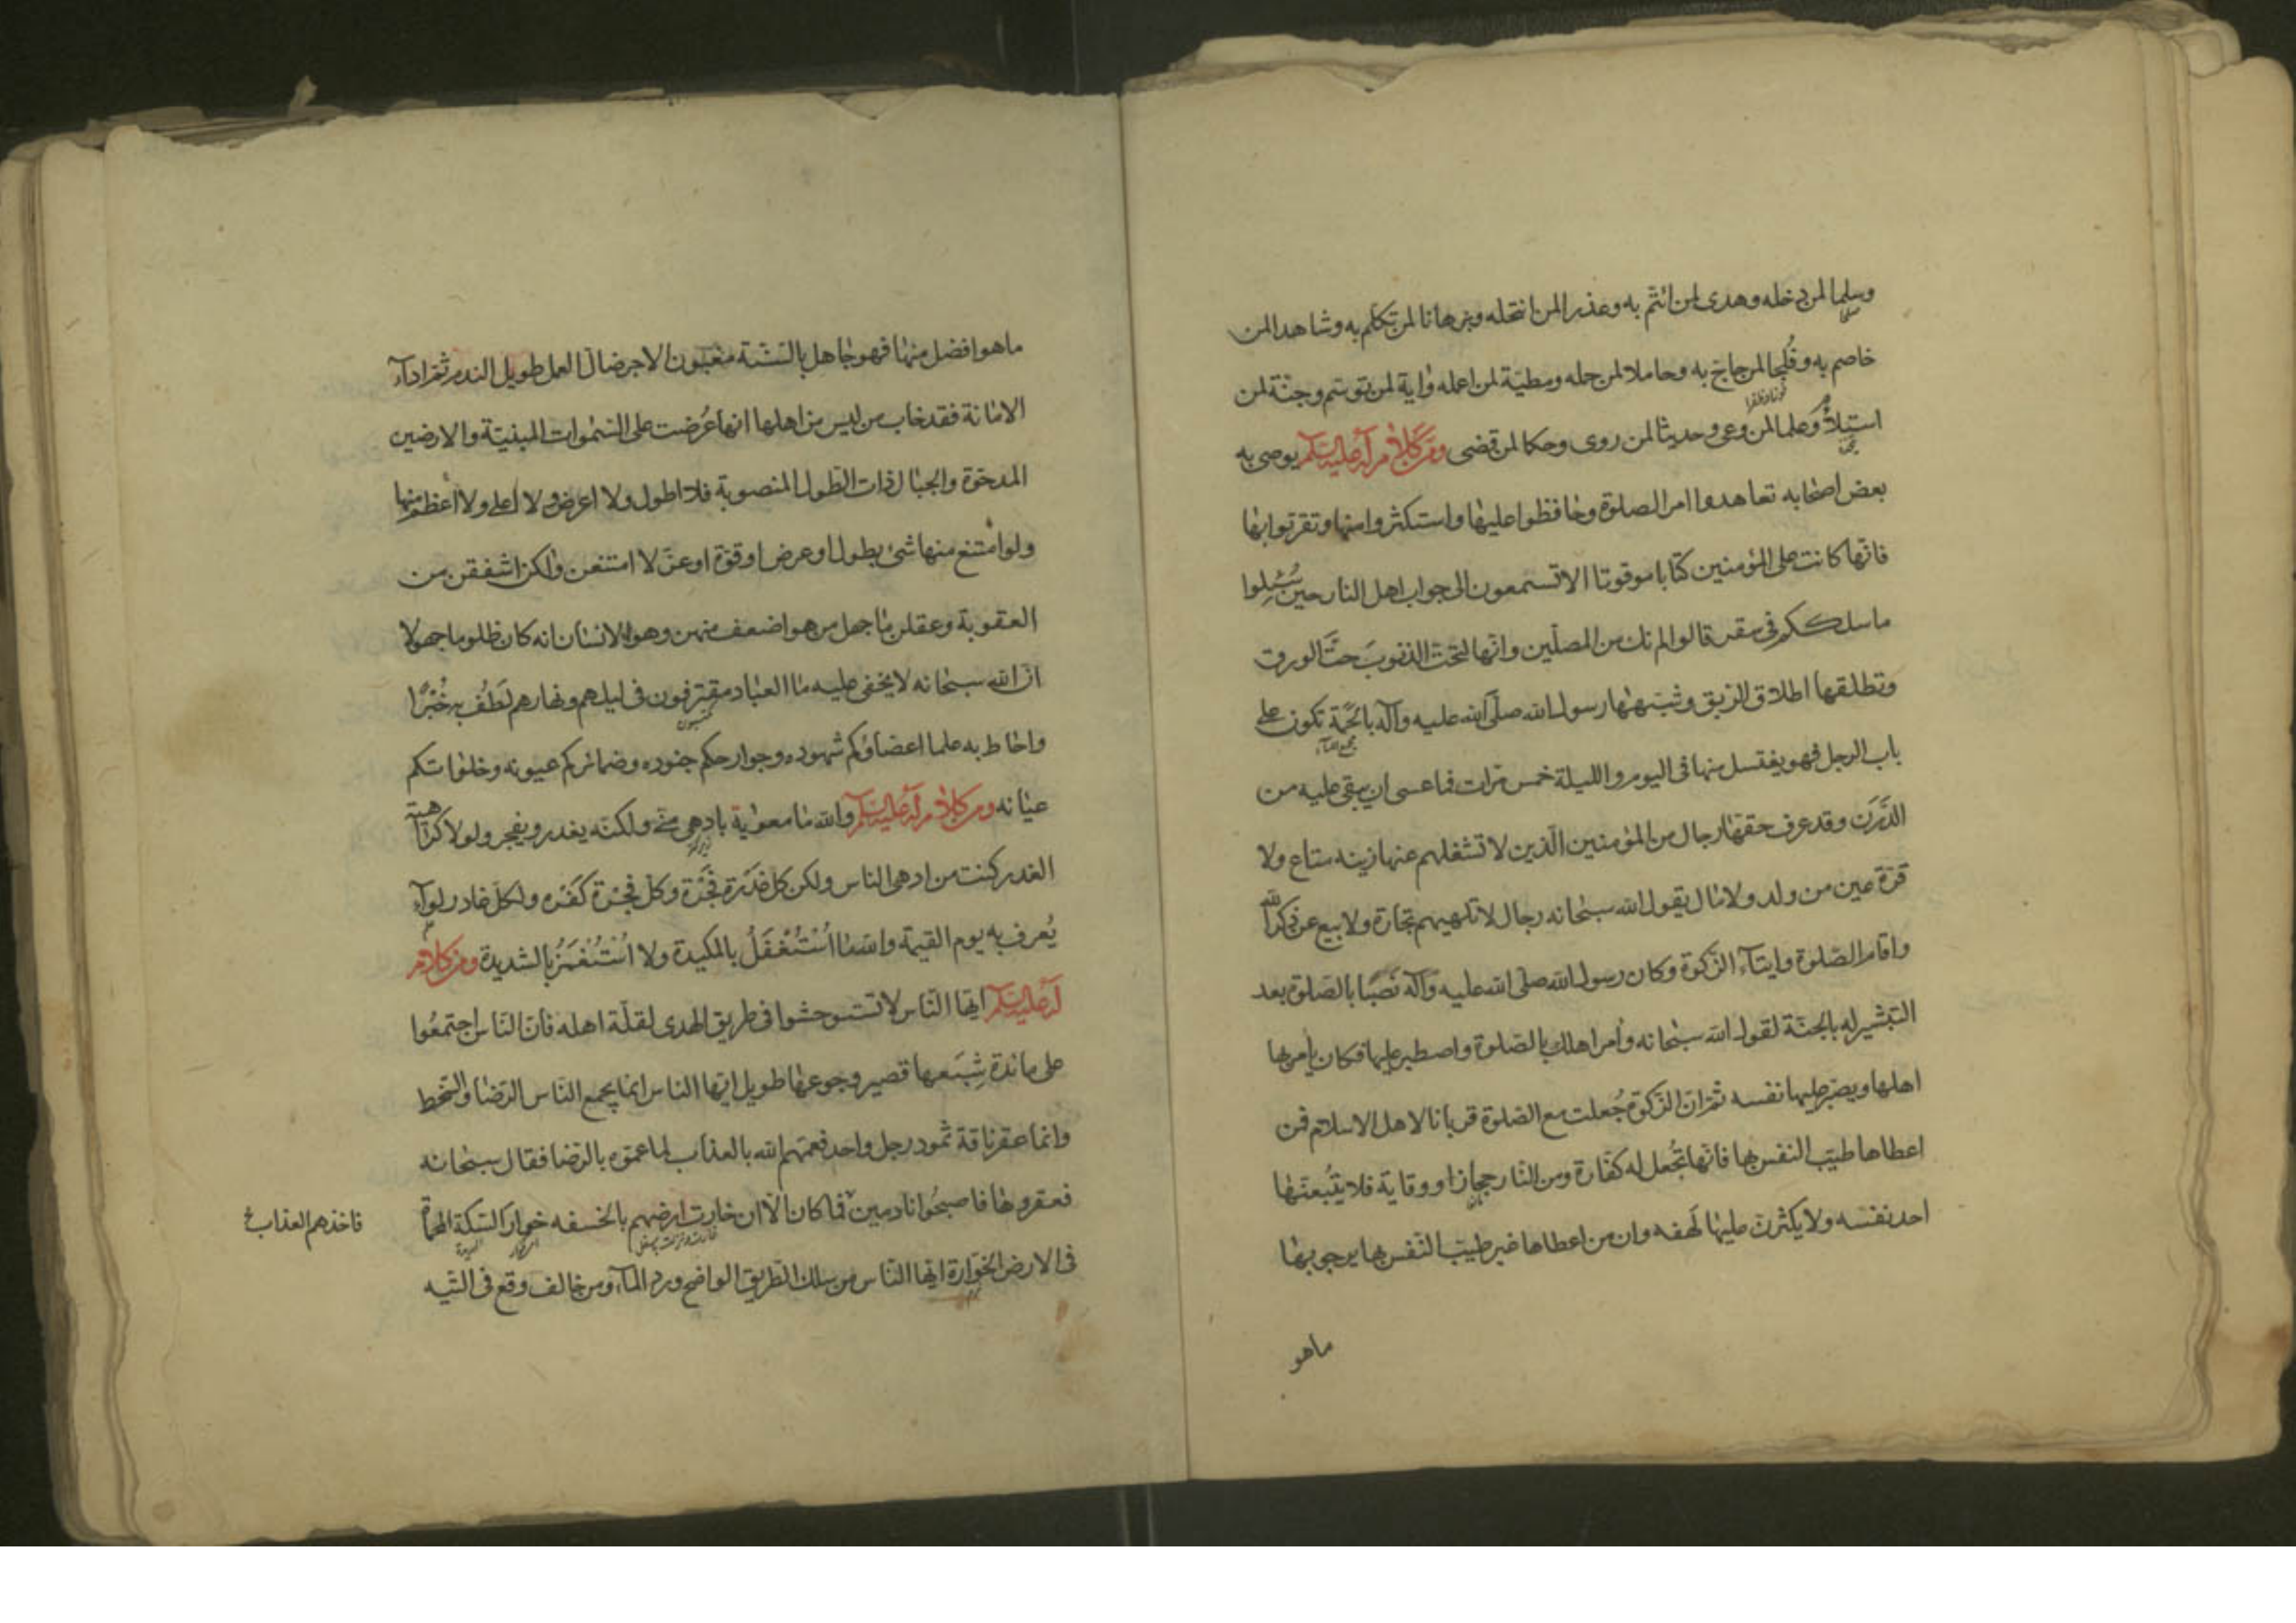 وسلما لمن دخله وهدى لمن ائتم به وعذرا لمن انتحله وبرهانا لمن تكلم به وشاهدا لمن
خاصم به وفلجا لمن حاج به وحاملا لمن حمله ومطية لمن اعمله واية لمن توسم وجنة لمن
استلأم وعلما لمن وعى وحديثا لمن روى وحكما لمن قضى ومن كلام له عليه السلم يوصى به
بعض اصحابه تعاهدوا امر الصلوة وحافظوا عليها واستكثروا منها وتقربوا بها
فانها كانت على المؤمنين كتابا موقوتا الا تسمعون الى جواب اهل النار حين سُئِلوا
ما سلككم فى سقر قالوا لم نك من المصلين وانها لتحت الذنوبَ حتَّ الورق
وتطلقها اطلاق الربق وشبهها رسول الله صلى الله عليه وآله بالحمة تكون على
باب الرجل فهو يغتسل منها فى اليوم والليلة خمس مرات فما عسى ان يبقى عليه من
الدَّرَن وقد عرف حقها رجال من المؤمنين الذين لا تشغلهم عنها زينة متاع ولا
قرة عين من ولد ولا مال يقول الله سبحانه رجال لا تلهيهم تجارة ولا بيع عن ذكر الله
واقام الصلوة وايتآء الزكوة وكان رسول الله صلى الله عليه وآله نَصِبًا بالصلوة بعد
التبشير له بالجنة لقول الله سبحانه وأمر اهلك بالصلوة واصطبر عليها فكان يأمر بها
اهلها ويصبر عليها نفسه ثم ان الزكوة جُعلت مع الصلوة قربانا لاهل الاسلام فمن
اعطاها طيب النفس بها فانها تُجعل له كفارة ومن النار حجازا ووقاية فلا يتبعنها
احد نفسه ولا يكثرن عليها لَهفه وان من اعطاها غير طيب النفس بها يرجو بها
ماهو
ما هو افضل منها فهو جاهل بالسنة مغبون الاجر ضال العمل طويل الندم ثم ادآء
الامانة فقد خاب من ليس من اهلها انها عُرضت على السموات المبنية والارضين
المدحوة والجبال ذات الطول المنصوبة فلا اطول ولا اعرض ولا اعلى ولا أعظم منها
ولو امتنع منها شئ بطول او عرض او قوة او عز لا امتنعن ولكن اشفقن من
العقوبة وعقلن ما جهل من هو اضعف منهن وهو الانسان انه كان ظلوما جهولا
ان الله سبحانه لا يخفى عليه ما العباد مقترفون فى ليلهم ونهارهم لَطُف به خُبْرًا
واحاط به علما اعضاؤكم شهوده وجوارحكم جنوده وضمائركم عيونه وخلواتكم
عيانه ومن كلام له عليه السلم والله ما معوية بادهى منى ولكنه يغدر ويفجر ولولا كراهية
الغدر كنت من ادهى الناس ولكن كل غَدَرة فَجَرَة وكل فجرة كَفَرَه ولكل غادر لوآء
يُعرف به يوم القيمة والله ما اُسْتَغْفَلُ بالمكيدة ولا اُسْتَغمَزُ بالشديدة ومن كلام
له عليه السلم ايها الناس لا تستوحشوا فى طريق الهدى لقلة اهله فان الناس اجتمعُوا
على مائدة شِبَعها قصير وجوعها طويل ايها الناس انما يجمع الناس الرضا والسخط
وانما عقر ناقة ثمود رجل واحد فعمهم الله بالعذاب لما عموه بالرضا فقال سبحانه
فعقروها فاصبحُوا نادمين فما كان الا ان خارت ارضهم بالخسفه خوار السكة المحماة
فاخذهم العذاب
فى الارض الخوارة ايها الناس من سلك الطريق الواضح ورد المآء ومن خالف وقع فى التيه